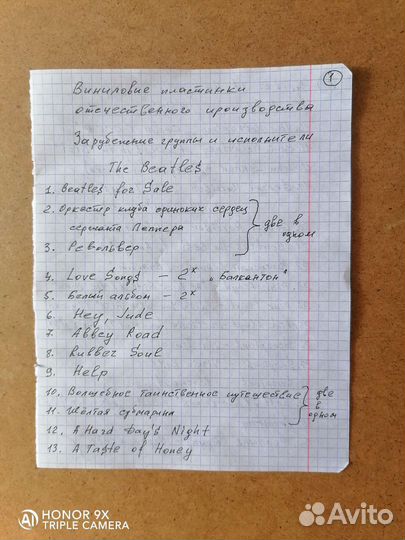 1
Виниловые пластинки
отечественного производства
Зарубежные группы и исполнители
The Beatles
1. Beatles for Sale
2. Оркестр клуба одиноких сердец
сержанта Пеппера
3. Револьвер
две в
одном
4. Love Songs – 2х „Балкантон"
5. Белый альбом – 2х
6. Hey, Jude
7. Abbey Road
8. Rubber Soul
9. Help
10. Волшебное таинственное путешествие
11. Жёлтая субмарина
две
в
одном
12. A Hard Day's Night
13. A Taste of Honey
HONOR 9X
TRIPLE CAMERA
AI
Avito